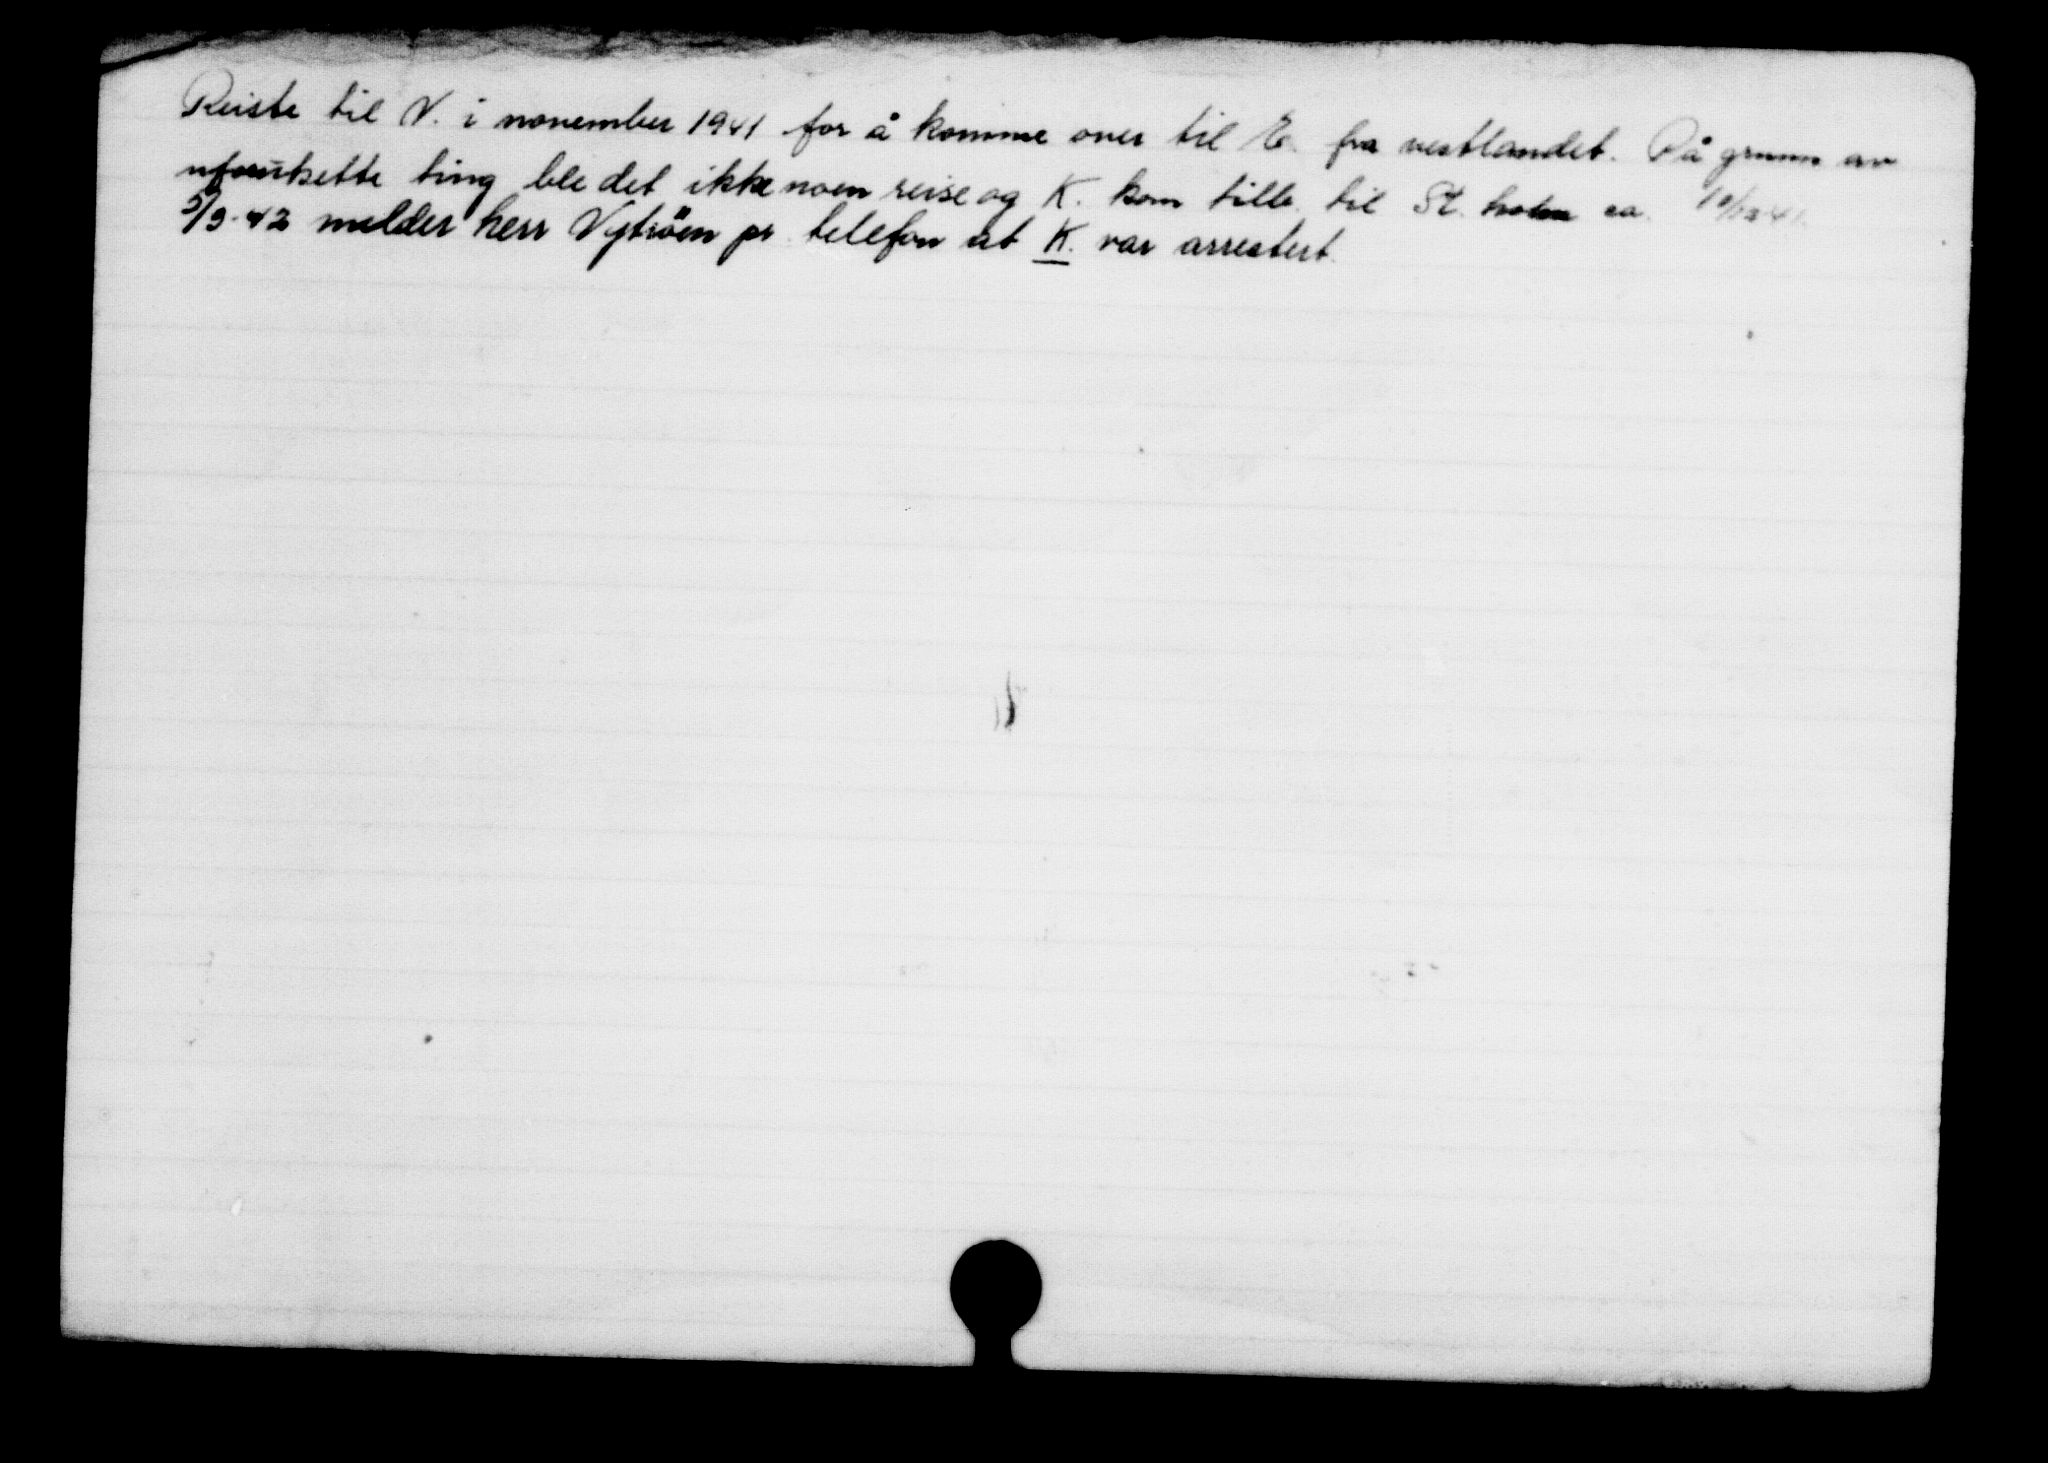 Reiste til N. i november 1941 for å komme over til E. fra vestlandet. På grunn av
uforutsette ting ble det ikke noen reise og K. kom tilb. til St. holm ca. 10/12 41.
5/3-42 melder herr Nytröen pr. telefon at K. var arrestert.